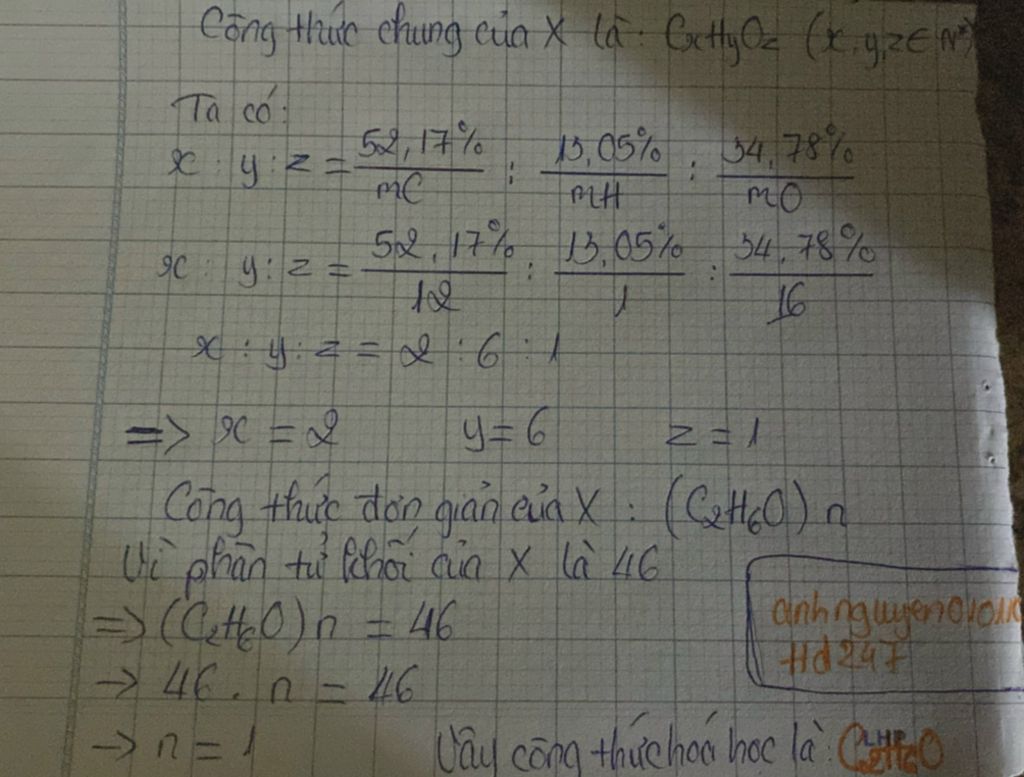 Công thức chung của X là: CxHyOz (x, y, z ∈ N*)
Ta có:
x : y : z = 52,17% / mC : 13,05% / mH : 34,78% / mO
x : y : z = 52,17% / 12 : 13,05% / 1 : 34,78% / 16
x : y : z = 2 : 6 : 1
=> x = 2 y = 6 z = 1
Công thức đơn giản của X : (C2H6O)n
Vì phân tử khối của X là 46
=> (C2H6O)n = 46
-> 46 . n = 46
-> n = 1
Vậy công thức hoá học là: C2H6O
Hd247